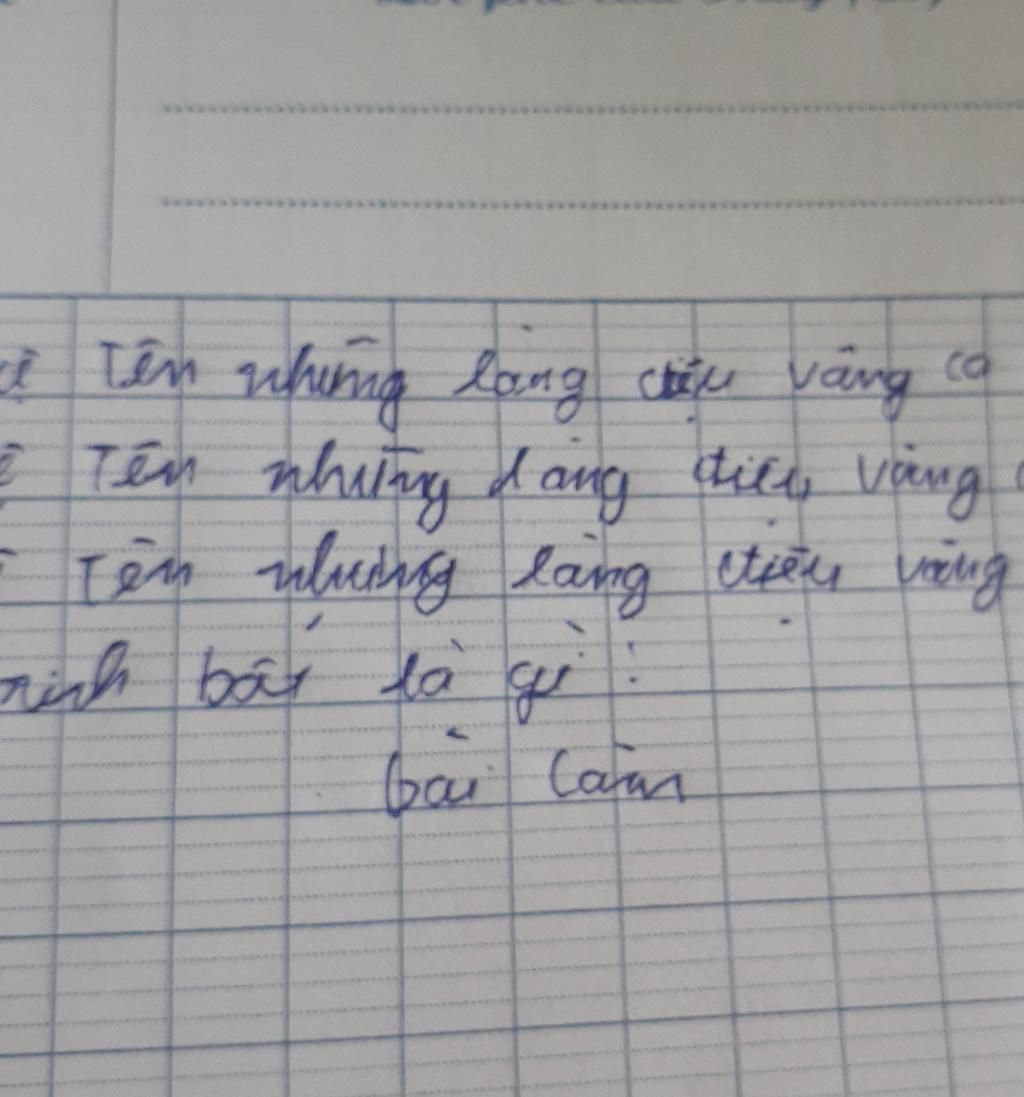 Tên những làng điệu vàng ca
Tên những làng điệu vàng
Tên những làng điệu vàng
ninh bát là gì :
bài làm